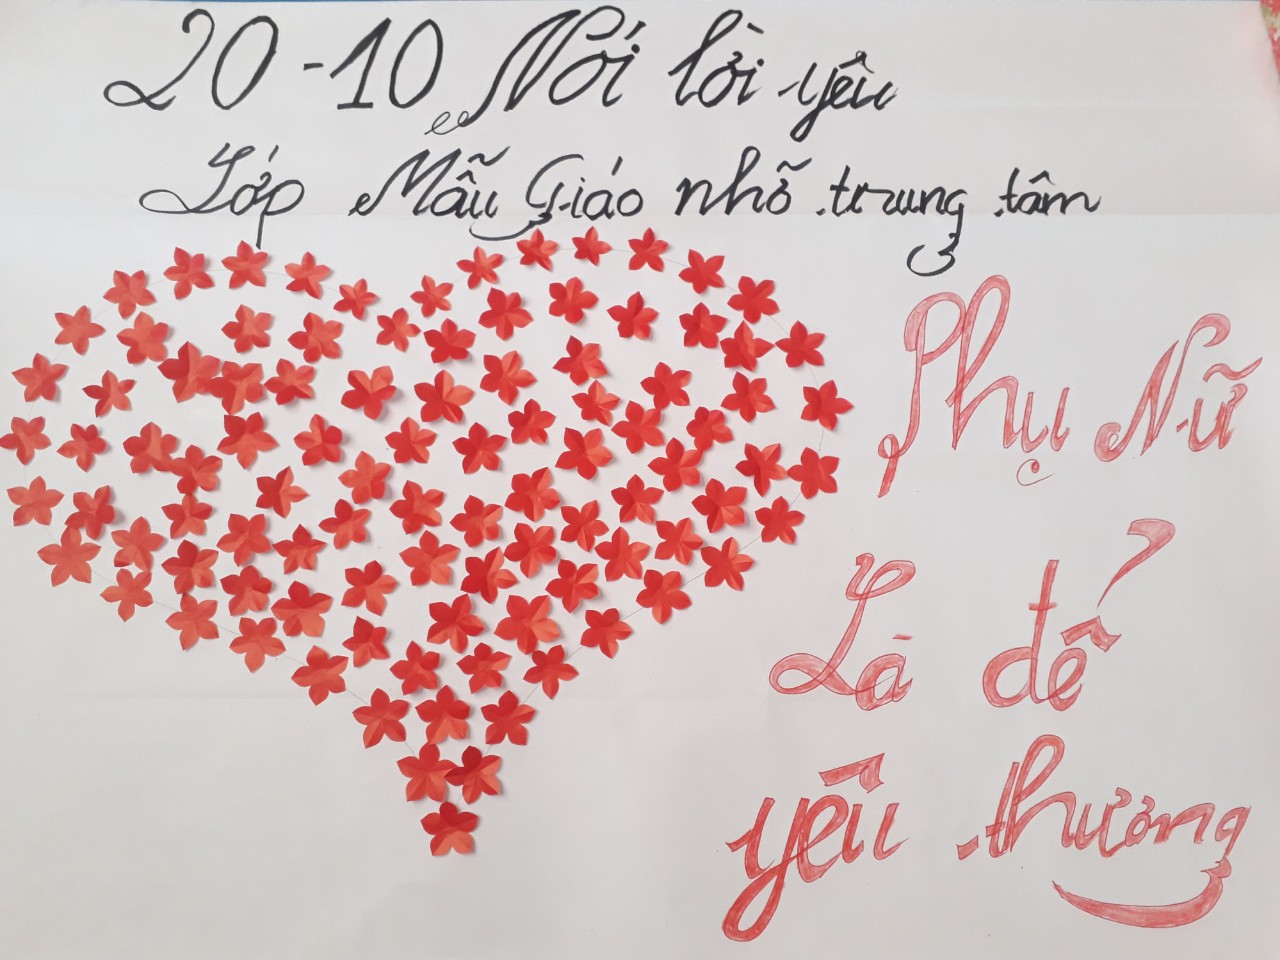 20-10 Nói lời yêu
Lớp Mẫu Giáo nhỡ trung tâm
Phụ Nữ
Là để
yêu thương